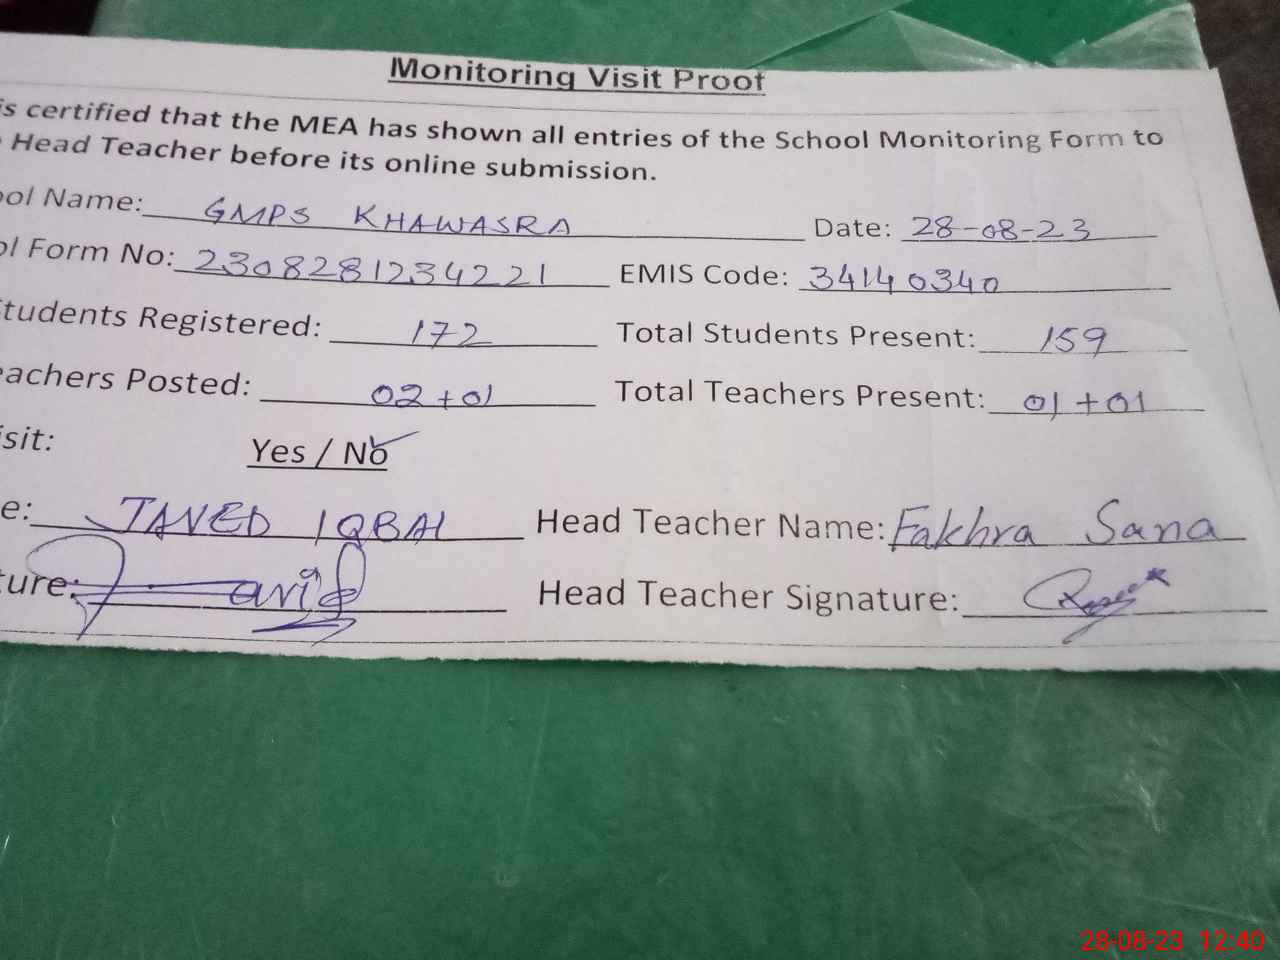 Monitoring Visit Proof
is certified that the MEA has shown all entries of the School Monitoring Form to
Head Teacher before its online submission.
ool Name: GMPS KHAWASRA Date: 28-08-23
ol Form No: 2308281234221 EMIS Code: 34140340
Students Registered: 172 Total Students Present: 159
eachers Posted: 02+01 Total Teachers Present: 01+01
isit: Yes / No
e: JAVED IQBAL Head Teacher Name: Fakhra Sana
ture: Javid Head Teacher Signature:
28-08-23 12:40